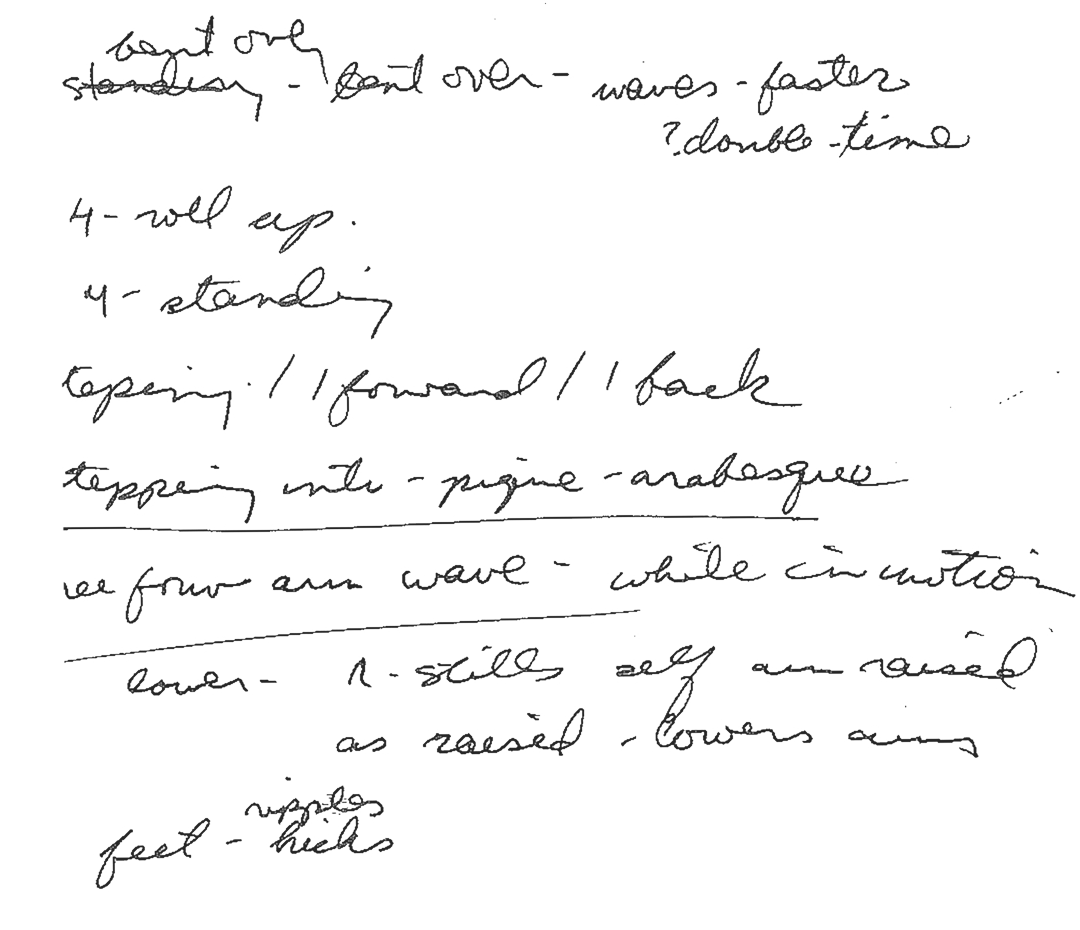 bent over
standing - bent over - waves - faster
? double-time
4 - roll up.
4 - standing
/ 1 forward / 1 back
stepping into - pique - arabesque
four arm wave - while in motion
lower - R - stills self arm raised
as raised - lowers arms
ripples
feet - kicks